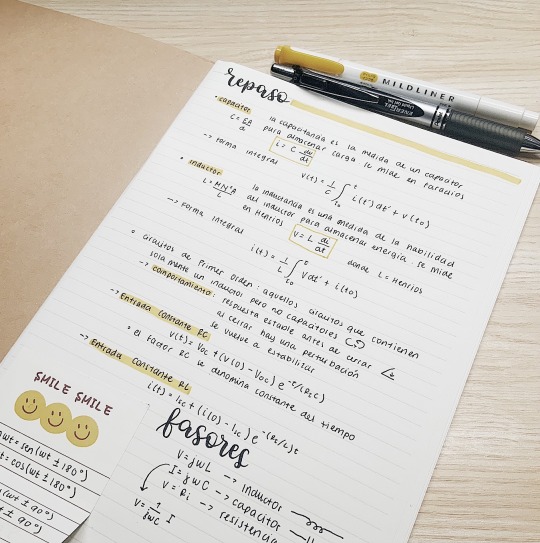 MILDLINER
ENERGEL
repaso
• capacitor
C = εA/d
la capacitancia es la medida de un capacitor
para almacenar carga se mide en Faradios
i = C dv/dt
→ Forma integral
v(t) = 1/C ∫ₜ₀ᵗ i(t')dt' + v(t₀)
• inductor
L = μN²A/L
la inductancia es una medida de la habilidad
del inductor para almacenar energía. se mide
en Henrios
v = L di/dt
donde L = Henrios
→ Forma integral
i(t) = 1/L ∫ₜ₀ᵗ vdt' + i(t₀)
• circuitos de Primer Orden: aquellos circuitos que contienen
solamente un inductor pero no capacitores
→ comportamiento: respuesta estable antes de cerrar
al cerrar hay una perturbación
se vuelve a estabilizar
→ Entrada constante RC
v(t) = Voc + (V(0) - Voc) e
• el factor RC se denomina constante del tiempo
→ Entrada constante RL
i(t) = Isc + (i(0) - Isc) e
fasores
V = jωL → inductor
I = jωC → capacitor
V = Ri → resistencia
V = 1/jωC I
SMILE SMILE
ωt = sen(ωt ± 180°)
t = cos(ωt ± 180°)
(ωt ± 90°)
t ± 90°)